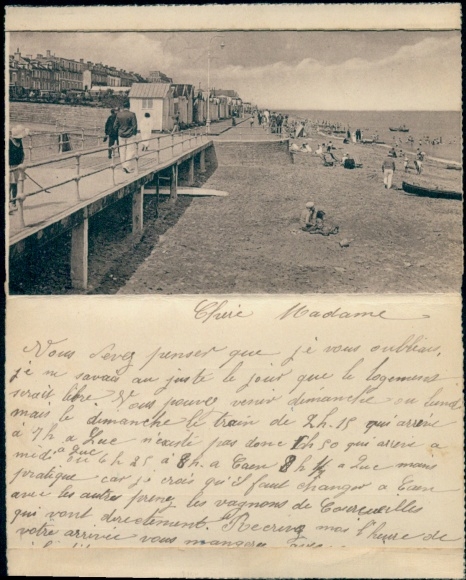 Chère Madame
Vous devez penser que je vous oubliais,
je ne savais au juste le jour que le logement
serait libre Vous pouvez venir dimanche ou lundi
mais le dimanche le train de 2h.15 qui arrive
à 7h a Luc n'existe pas donc 7h50 qui arrive a
midi a Luc ou 6h 25 à 8h. a Caen 8h a Luc mais
pratique car je crois qu'il faut changer a Caen
avec les autres prenez les vagons de Courseulles
qui vont directement. Recrivez moi l'heure de
votre arrivée vous mangerez